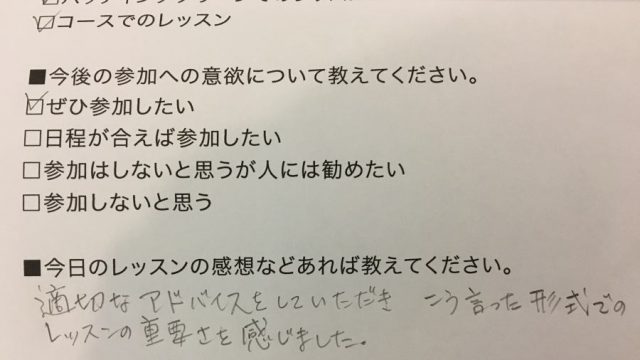 ☑コースでのレッスン
■今後の参加への意欲について教えてください。
☑ぜひ参加したい
□日程が合えば参加したい
□参加はしないと思うが人には勧めたい
□参加しないと思う
■今日のレッスンの感想などあれば教えてください。
適切なアドバイスをしていただき こう言った形式での
レッスンの重要さを感じました。